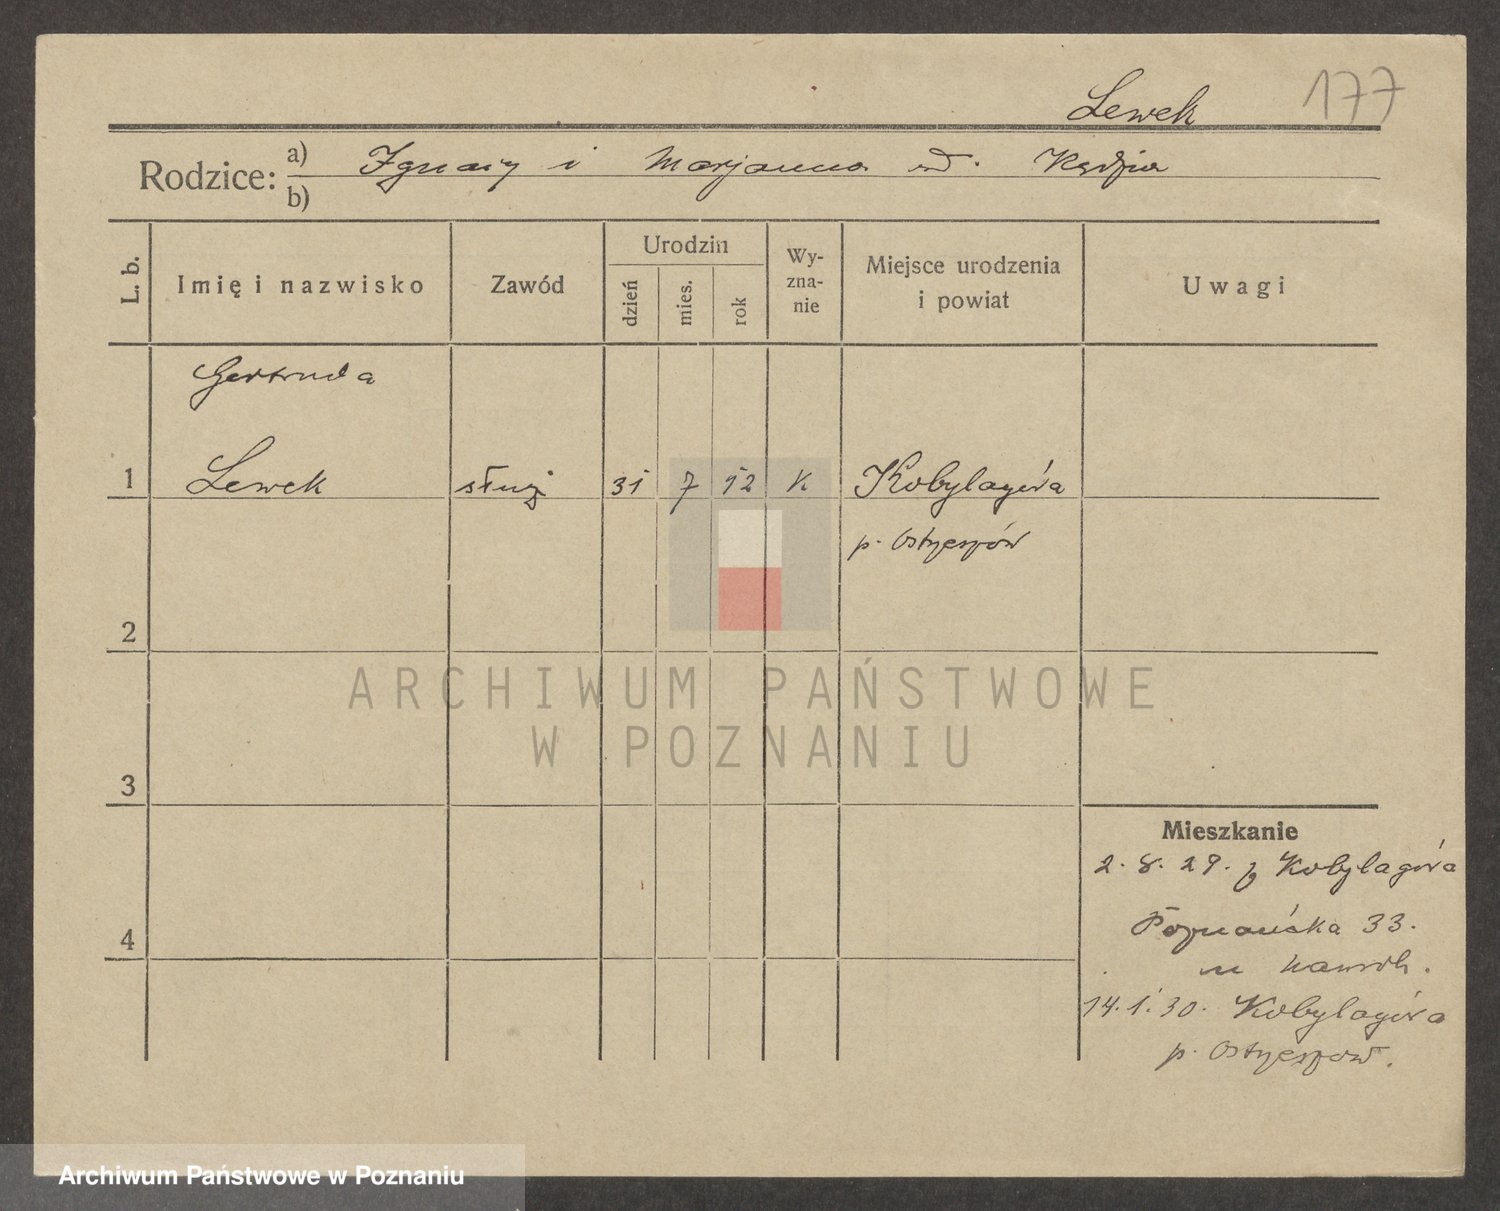 177
Lewek
Rodzice: a) Ignacy i Marjanna Kędzia
b)
L. b. Imię i nazwisko Zawód Urodzin dzień mies. rok Wy-zna-nie Miejsce urodzenia i powiat Uwagi
Gertruda
1 Lewek służ 31 7 12 K Kobylagóra
p. Ostrzeszów
2
ARCHIWUM PAŃSTWOWE
W POZNANIU
3
Mieszkanie
2. 8. 29. z Kobylagóra
Poznańska 33.
4
u
14. 1. 30. Kobylagóra
p. Ostrzeszow.
Archiwum Państwowe w Poznaniu